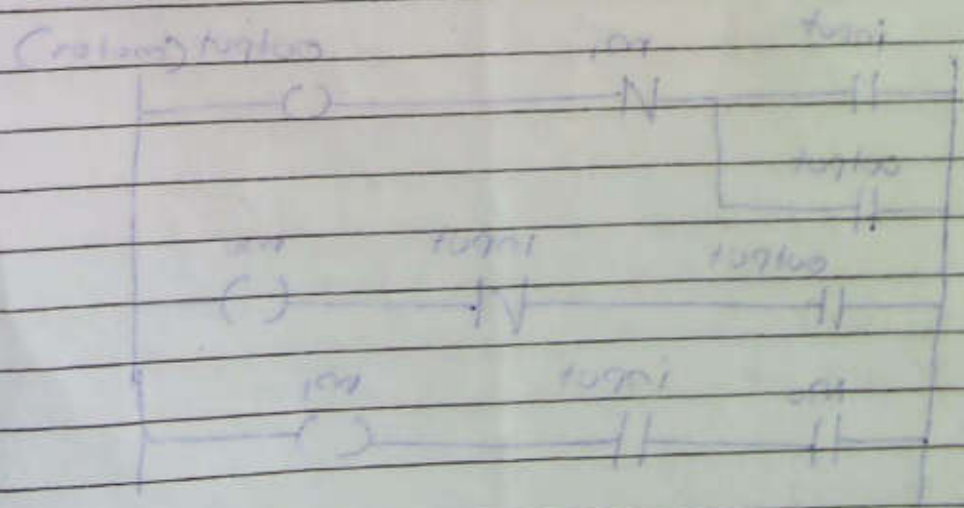 input M1 output (motor)
output
output input M0
M0 input M1